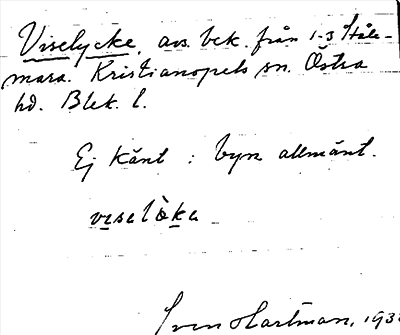 Viselycke, avs. bek. från 1-3 Ståle-
mara. Kristianopels sn. Östra
hd. Blek. l.
Ej känt i byn allmänt.
Sven Hartman, 193